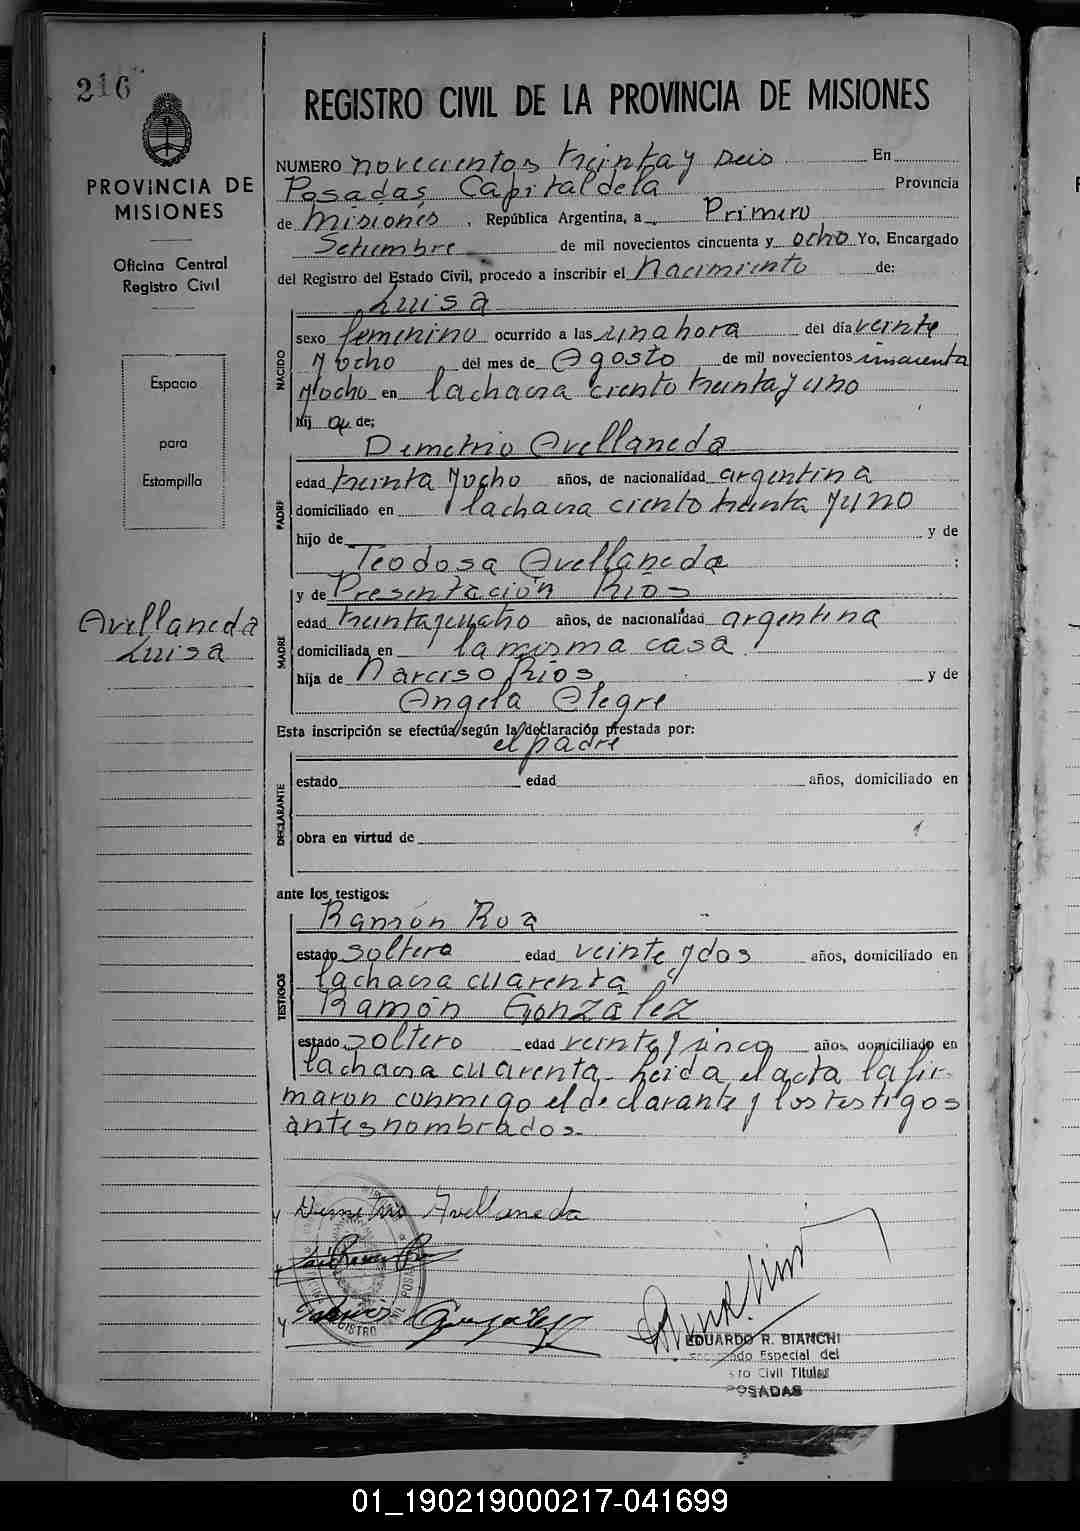 216
PROVINCIA DE
MISIONES
Oficina Central
Registro Civil
Espacio
para
Estampilla
Avellaneda
Luisa
REGISTRO CIVIL DE LA PROVINCIA DE MISIONES
NUMERO novecientos treinta y seis En
Posadas Capital de la Provincia
de Misiones, República Argentina, a Primero
Setiembre de mil novecientos cincuenta y ocho Yo, Encargado
del Registro del Estado Civil, procedo a inscribir el Nacimiento de:
Luisa
NACIDO
sexo femenino ocurrido a las una hora del día veinte
y ocho del mes de Agosto de mil novecientos cincuenta
y ocho en la chacra ciento treinta y uno
hij a de;
Demetrio Avellaneda
PADRE
edad treinta y ocho años, de nacionalidad argentina
domiciliado en la chacra ciento treinta y uno
hijo de y de
Teodosa Avellaneda ;
y de Presentación Ríos
MADRE
edad treinta y cuatro años, de nacionalidad argentina
domiciliada en la misma casa
hija de Narciso Ríos y de
Angela Alegre
Esta inscripción se efectúa según la declaración prestada por:
el padre
DECLARANTE
estado edad años, domiciliado en
obra en virtud de
ante los testigos:
Ramón Roa
TESTIGOS
estado soltero edad veinte y dos años, domiciliado en
la chacra cuarenta
Ramón González
estado soltero edad veinte y cinco años, domiciliado en
la chacra cuarenta - Leida el acta la fir-
maron conmigo el declarante y los testigos
antes nombrados.-
Demetrio Avellaneda
González
EDUARDO R. BIANCHI
Especial del
Civil Titular
POSADAS
01_190219000217-041699